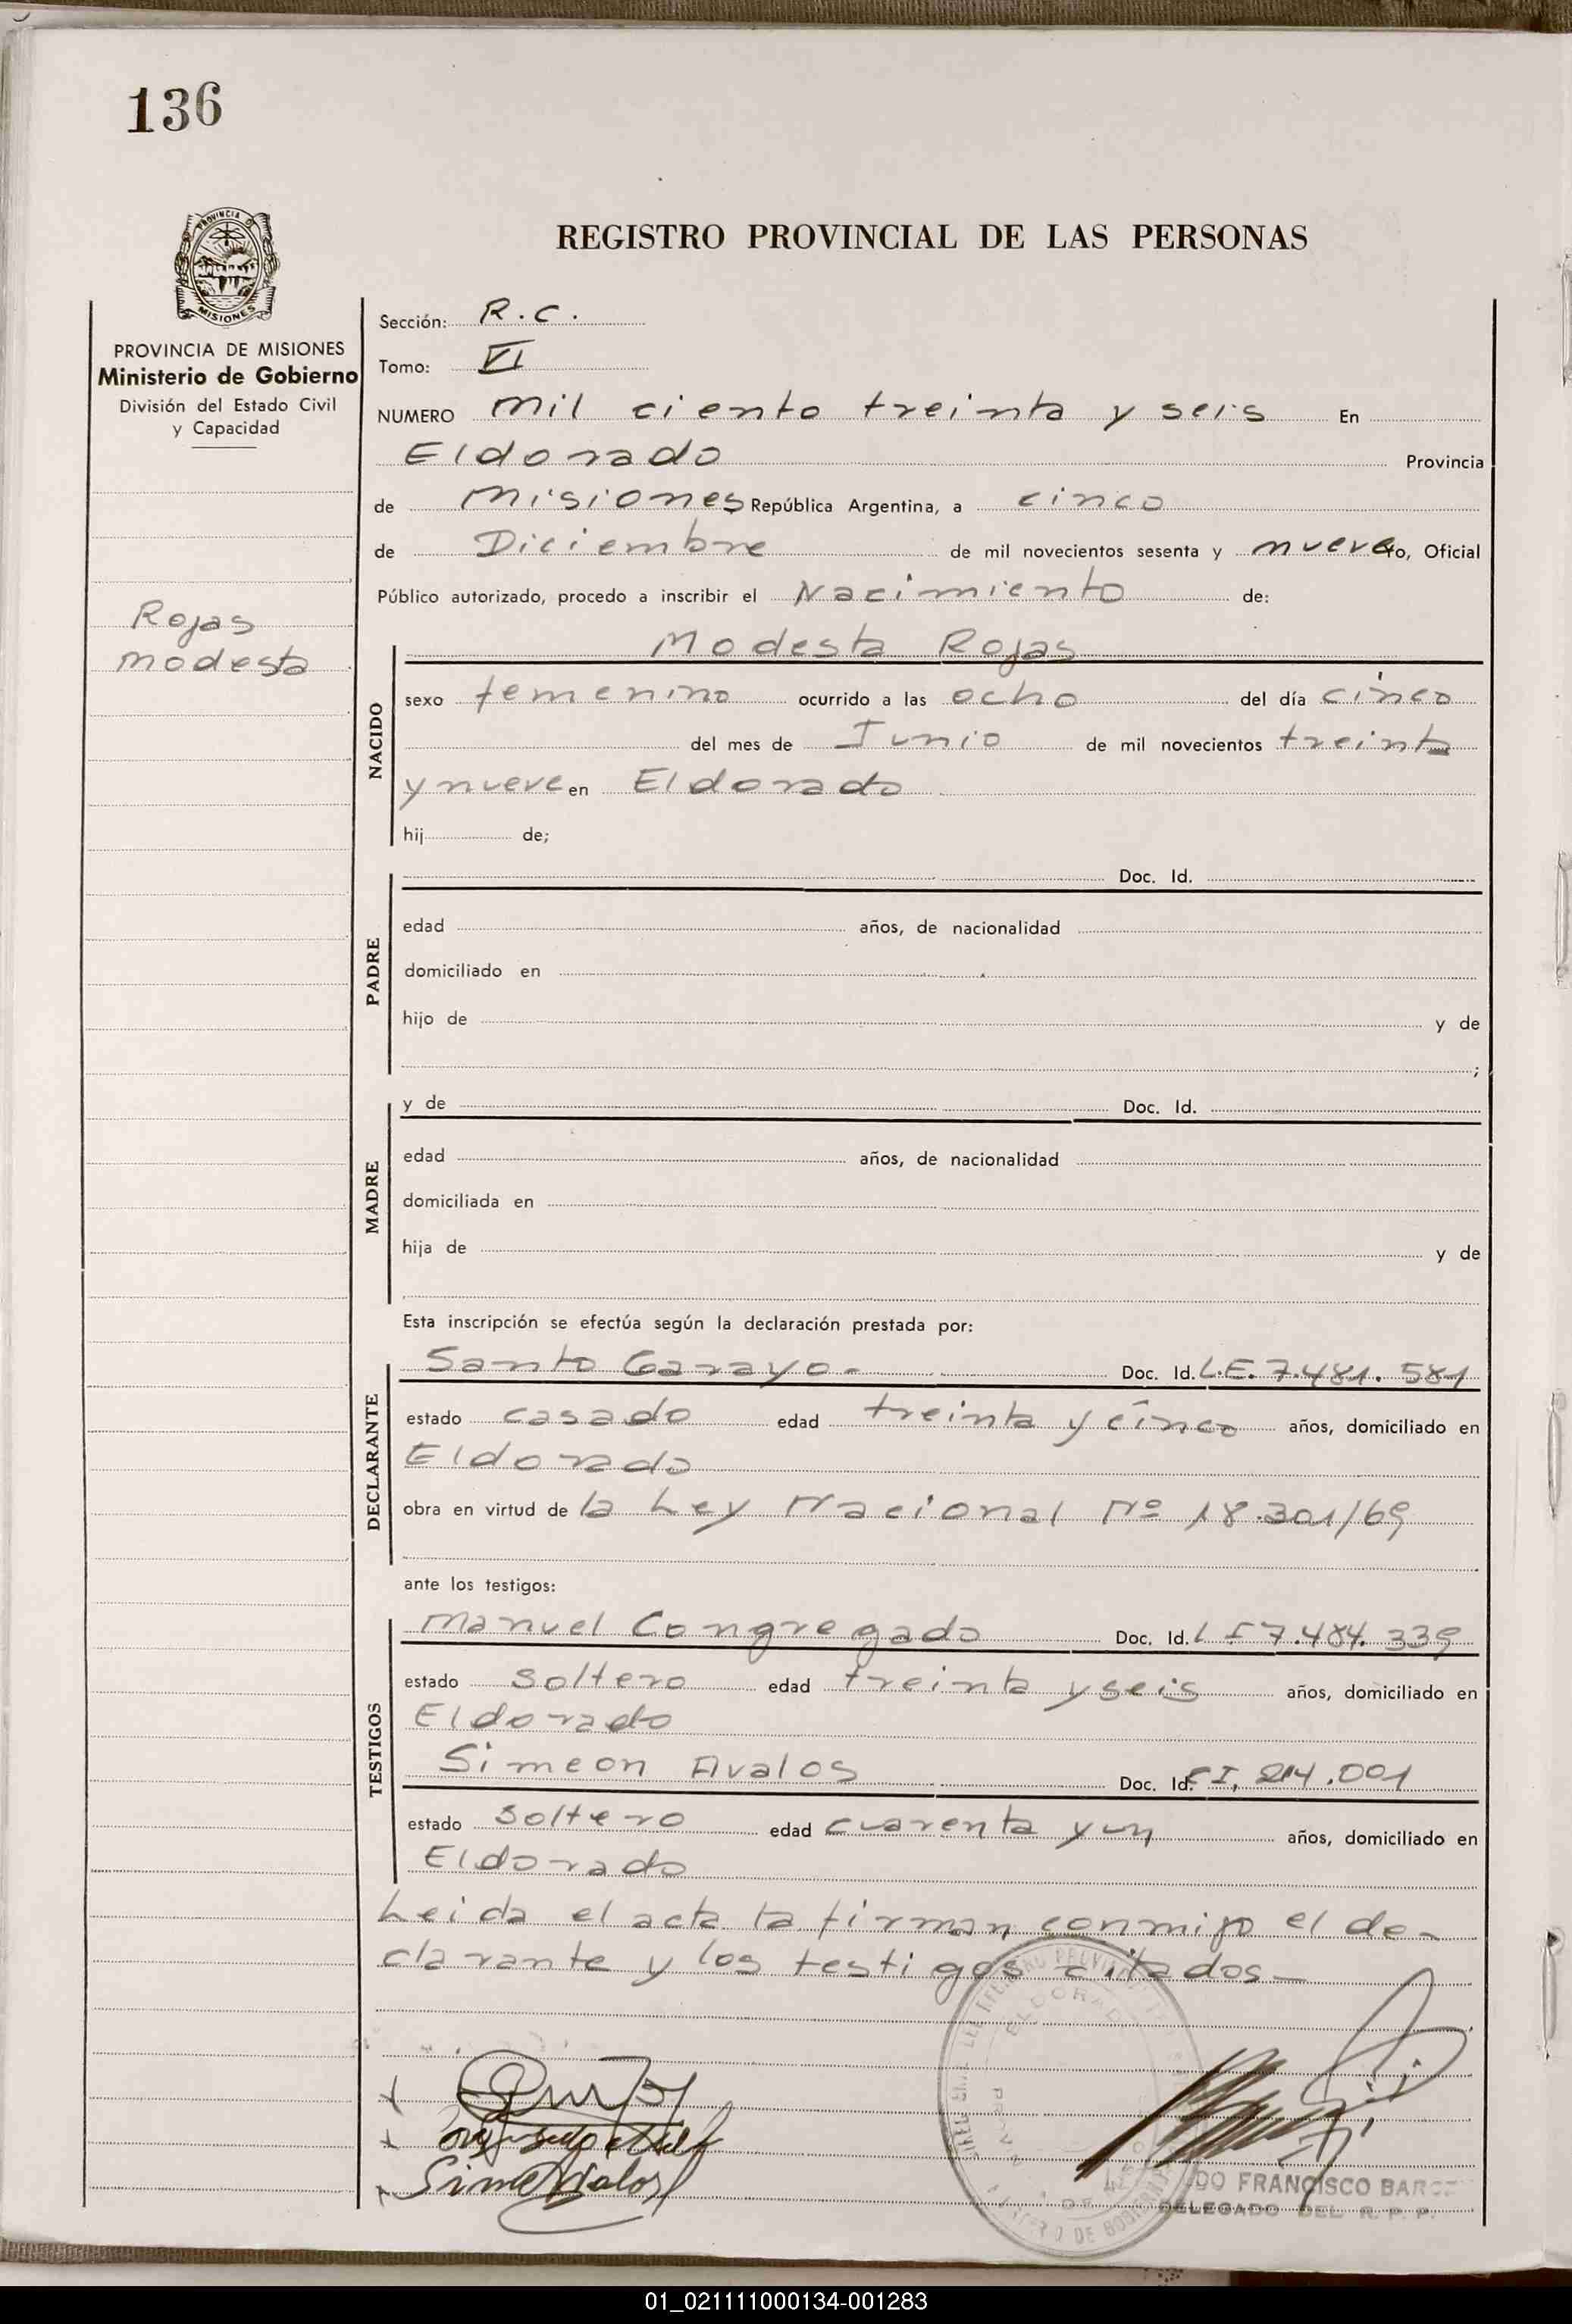 136
PROVINCIA DE
MISIONES
REGISTRO PROVINCIAL DE LAS PERSONAS
PROVINCIA DE MISIONES
Ministerio de Gobierno
División del Estado Civil
y Capacidad
Rojas
modesta
Sección: R.C.
Tomo: VI
NUMERO mil ciento treinta y seis En
Eldorado Provincia
de misiones República Argentina, a cinco
de Diciembre de mil novecientos sesenta y nueve to, Oficial
Público autorizado, procedo a inscribir el Nacimiento de:
Modesta Rojas
NACIDO
sexo femenino ocurrido a las ocho del día cinco
del mes de Junio de mil novecientos treinta
y nueve en Eldorado
hij de;
PADRE
Doc. Id.
edad años, de nacionalidad
domiciliado en
hijo de y de
;
MADRE
y de Doc. Id.
edad años, de nacionalidad
domiciliada en
hija de y de
Esta inscripción se efectúa según la declaración prestada por:
DECLARANTE
Santo Garayo- Doc. Id. L.E. 7.481.581
estado casado edad treinta y cinco años, domiciliado en
Eldorado
obra en virtud de la Ley Nacional Nº 18.301/69
ante los testigos:
TESTIGOS
Manuel Congregado Doc. Id. 7.484.339
estado soltero edad treinta y seis años, domiciliado en
Eldorado
Simeon Avalos Doc. Id. 214.001
estado soltero edad cuarenta y un años, domiciliado en
Eldorado
Leida el acta la firman conmigo el de-
clarante y los testigos citados-
ELDORADO
FRANCISCO
DELEGADO DEL R. P. P.
01_021111000134-001283